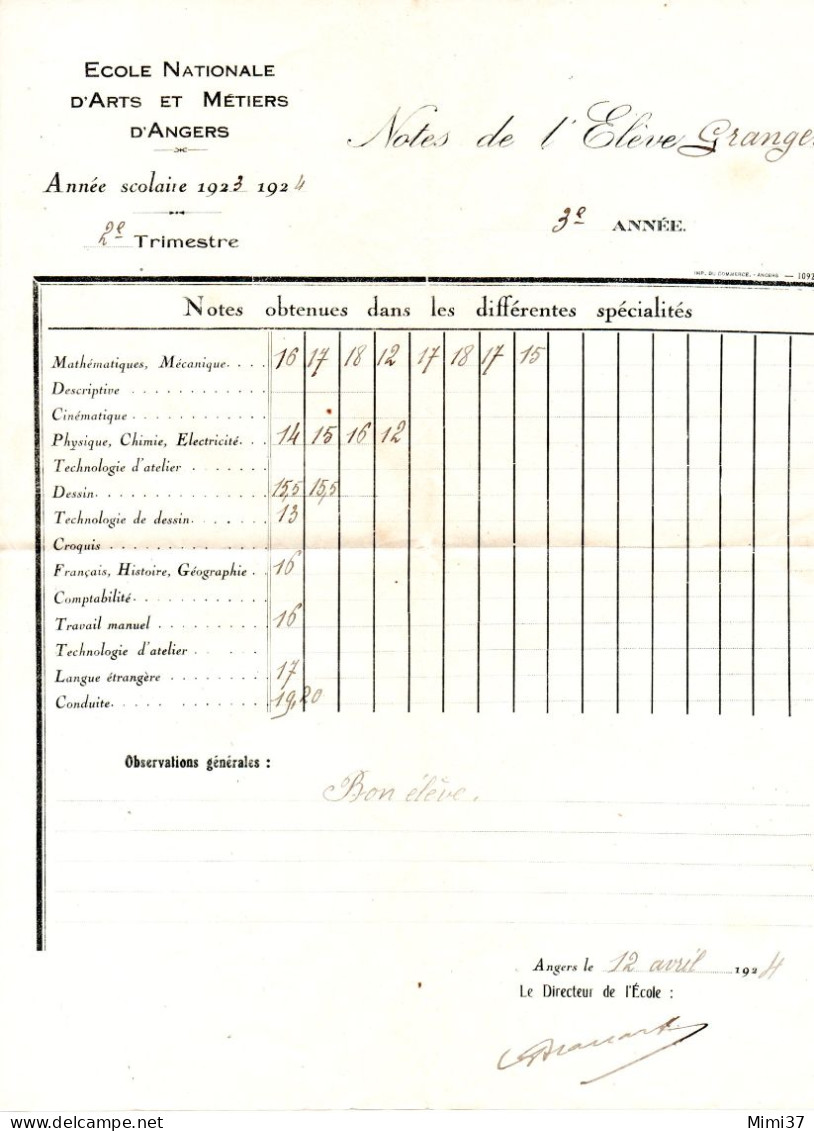 ECOLE NATIONALE
D'ARTS ET MÉTIERS
D'ANGERS
Année scolaire 1923 1924
2e Trimestre
Notes de l'Elève Grange
3e ANNÉE.
IMP. DU COMMERCE. - ANGERS — 1092
Notes obtenues dans les différentes spécialités
Mathématiques, Mécanique. . . . 16 17 18 12 17 18 17 15
Descriptive
Cinématique
Physique, Chimie, Electricité. . . 14 15 16 12
Technologie d'atelier
Dessin. 15,5 15,5
Technologie de dessin. 13
Croquis
Français, Histoire, Géographie . . 16
Comptabilité.
Travail manuel 16
Technologie d'atelier
Langue étrangère 17
Conduite. 19,20
Observations générales :
Bon élève.
Angers le 12 avril 1924
Le Directeur de l'École :
Mimi37